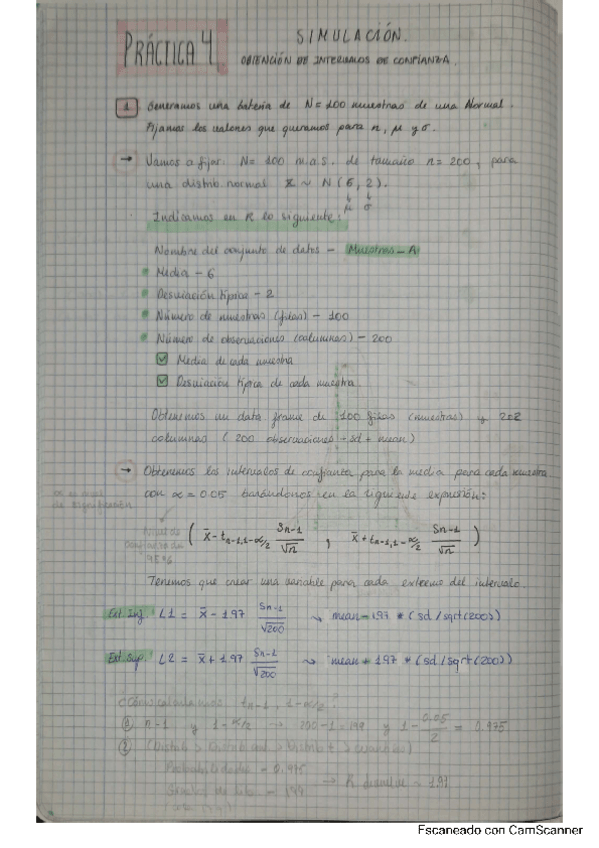 PRÁCTICA 4.
SIMULACIÓN.
OBTENCIÓN DE INTERVALOS DE CONFIANZA.
1 Generamos una batería de N = 100 muestras de una Normal.
Fijamos los valores que queramos para n, μ y σ.
→ Vamos a fijar: N = 100 m.a.s. de tamaño n = 200, para
una distrib. normal X ~ N(6, 2).
μ σ
Indicamos en R lo siguiente:
Nombre del conjunto de datos - Muestras_A
Media - 6
Desviación típica - 2
Número de muestras (filas) - 100
Número de observaciones (columnas) - 200
Media de cada muestra
Desviación típica de cada muestra
Obtenemos un data frame de 100 filas (muestras) y 202
columnas (200 observaciones + sd + mean)
→ Obtenemos los intervalos de confianza para la media para cada muestra
con α = 0.05 basándonos en la siguiente expresión:
α: nivel
de significación
Nivel de
confianza de
95%
( x̄ - tₙ₋₁,₁₋α/₂ Sn-1/√n , x̄ + tₙ₋₁,₁₋α/₂ Sn-1/√n )
Tenemos que crear una variable para cada extremo del intervalo.
Ext. Inf. L1 = x̄ - 1.97 Sn-1/√200 ⇝ mean - 1.97 * (sd/sqrt(200))
Ext. Sup. L2 = x̄ + 1.97 Sn-1/√200 ⇝ mean + 1.97 * (sd/sqrt(200))
¿Cómo calculamos tₙ₋₁, 1-α/2?
① n-1 y 1-α/2 → 200-1 = 199 y 1 - 0.05/2 = 0.975
② (Distrib > Distrib > Distrib t >
Probabilidades - 0.975
→ R devuelve - 1.97
Escaneado con CamScanner